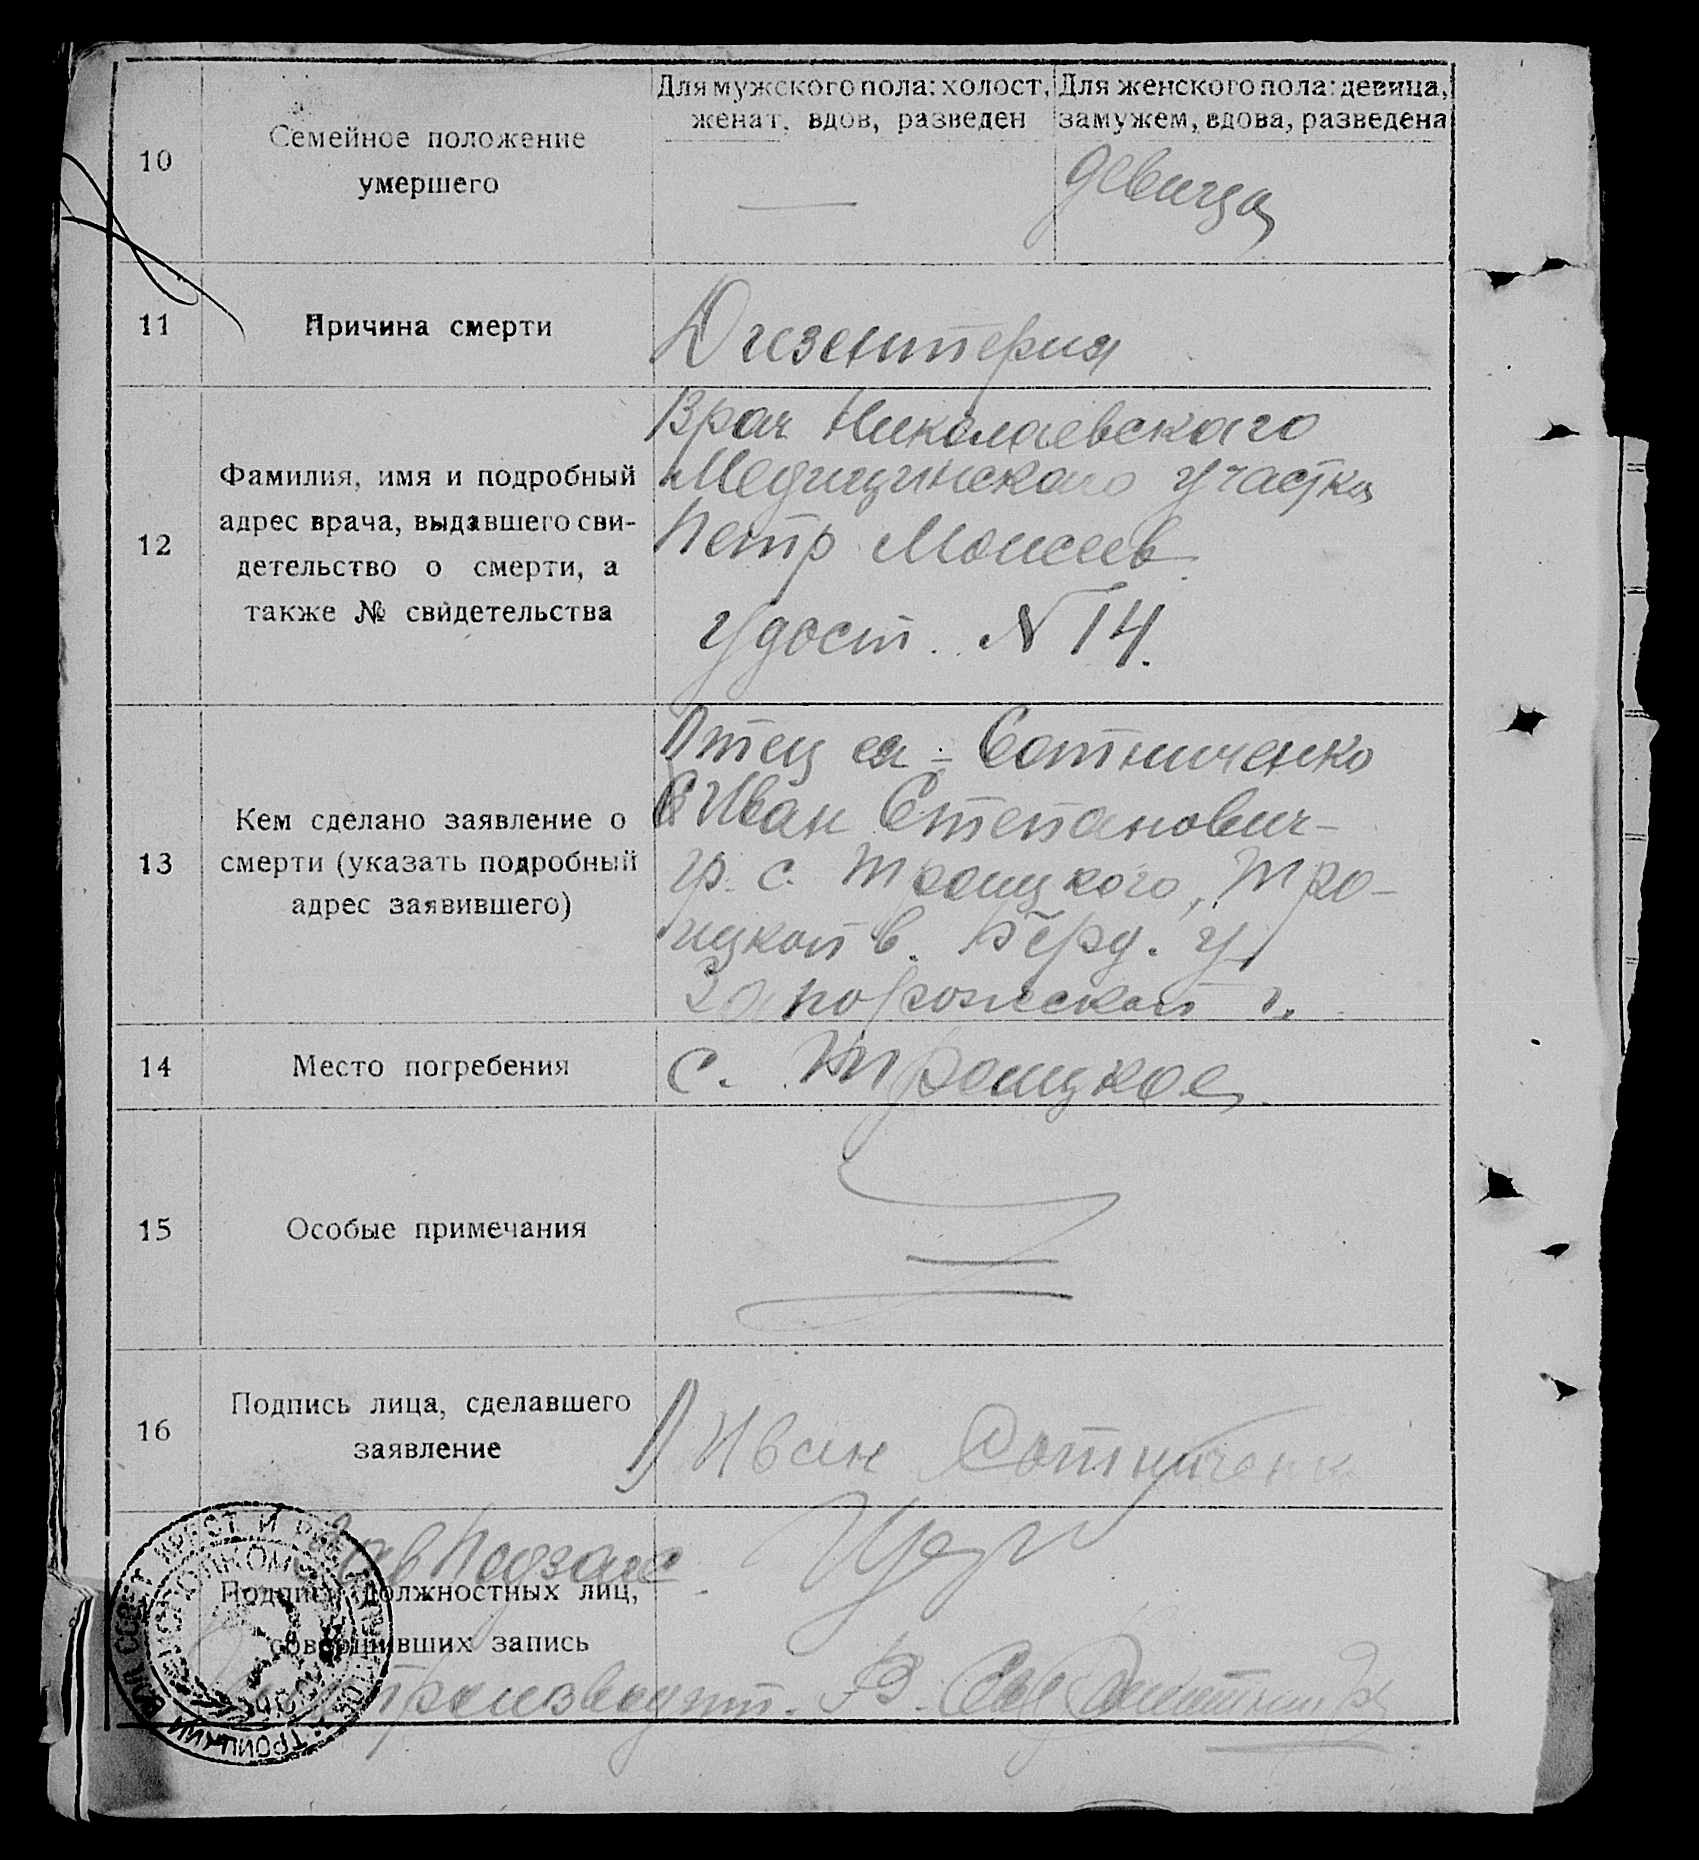 Для мужского пола: холост, женат, вдов, разведен
Для женского пола: девица, замужем, вдова, разведена
10
Семейное положение
умершего
—
девица
11
Причина смерти
Дизентерия
12
Фамилия, имя и подробный
адрес врача, выдавшего сви-
детельство о смерти, а
также № свидетельства
Врач Николаевского
Медицинского участка
Петр Моисеев
удост. N 14.
13
Кем сделано заявление о
смерти (указать подробный
адрес заявившего)
Отец ея - Сотниченко
Иван Степанович -
гр. с. Троицкого, Тро-
ицкой в. Берд. у.
Запорожской г.
14
Место погребения
с. Троицкое
15
Особые примечания
16
Подпись лица, сделавшего
заявление
1) Иван Сотниченк
Завподзагс
Подписи должностных лиц,
совершивших запись
производит. В.
ТРОИЦКИЙ